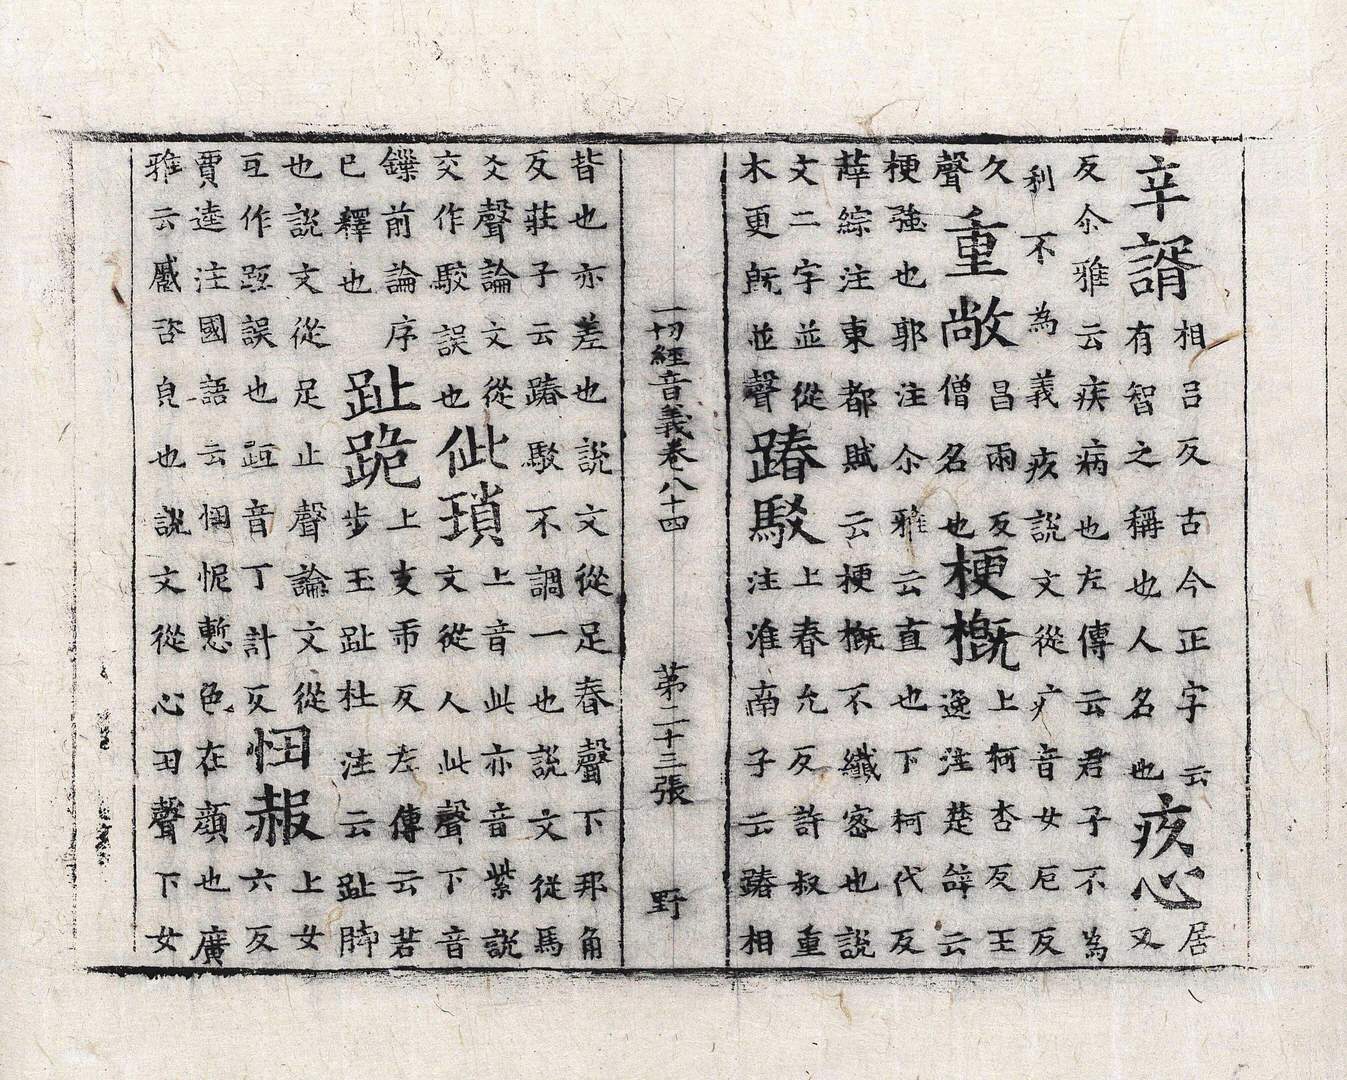 辛諝
相呂反古今正字云
有智之稱也人名也
疚心
居
又
反尒雅云疾病也左傳云君子不為
利不為義疚說文從疒音女厄反
久
聲
重敞
昌兩反
僧名也
梗概
上柯杏反王
逸注楚辭云
梗強也郭注尒雅云直也下柯代反
薛綜注東都賦云梗概不纖密也說
文二字並從
木更旣並聲
踳駮
上春允反許叔重
注淮南子云踳相
一切經音義卷八十四 第二十三張 野
皆也亦差也說文從足春聲下邦角
反莊子云踳駮不調一也說文從馬
爻聲論文從
交作駮誤也
佌瑣
上音此亦音紫說
文從人此聲下音
鏁前論序
已釋也
趾跪
上支帀反左傳云若
步玉趾杜注云趾脚
也說文從足止聲論文從
互作誤也音丁計反
忸赧
上女
六反
賈逵注國語云忸怩慙色在顏也廣
雅云慼咨皃也說文從心丑聲下女